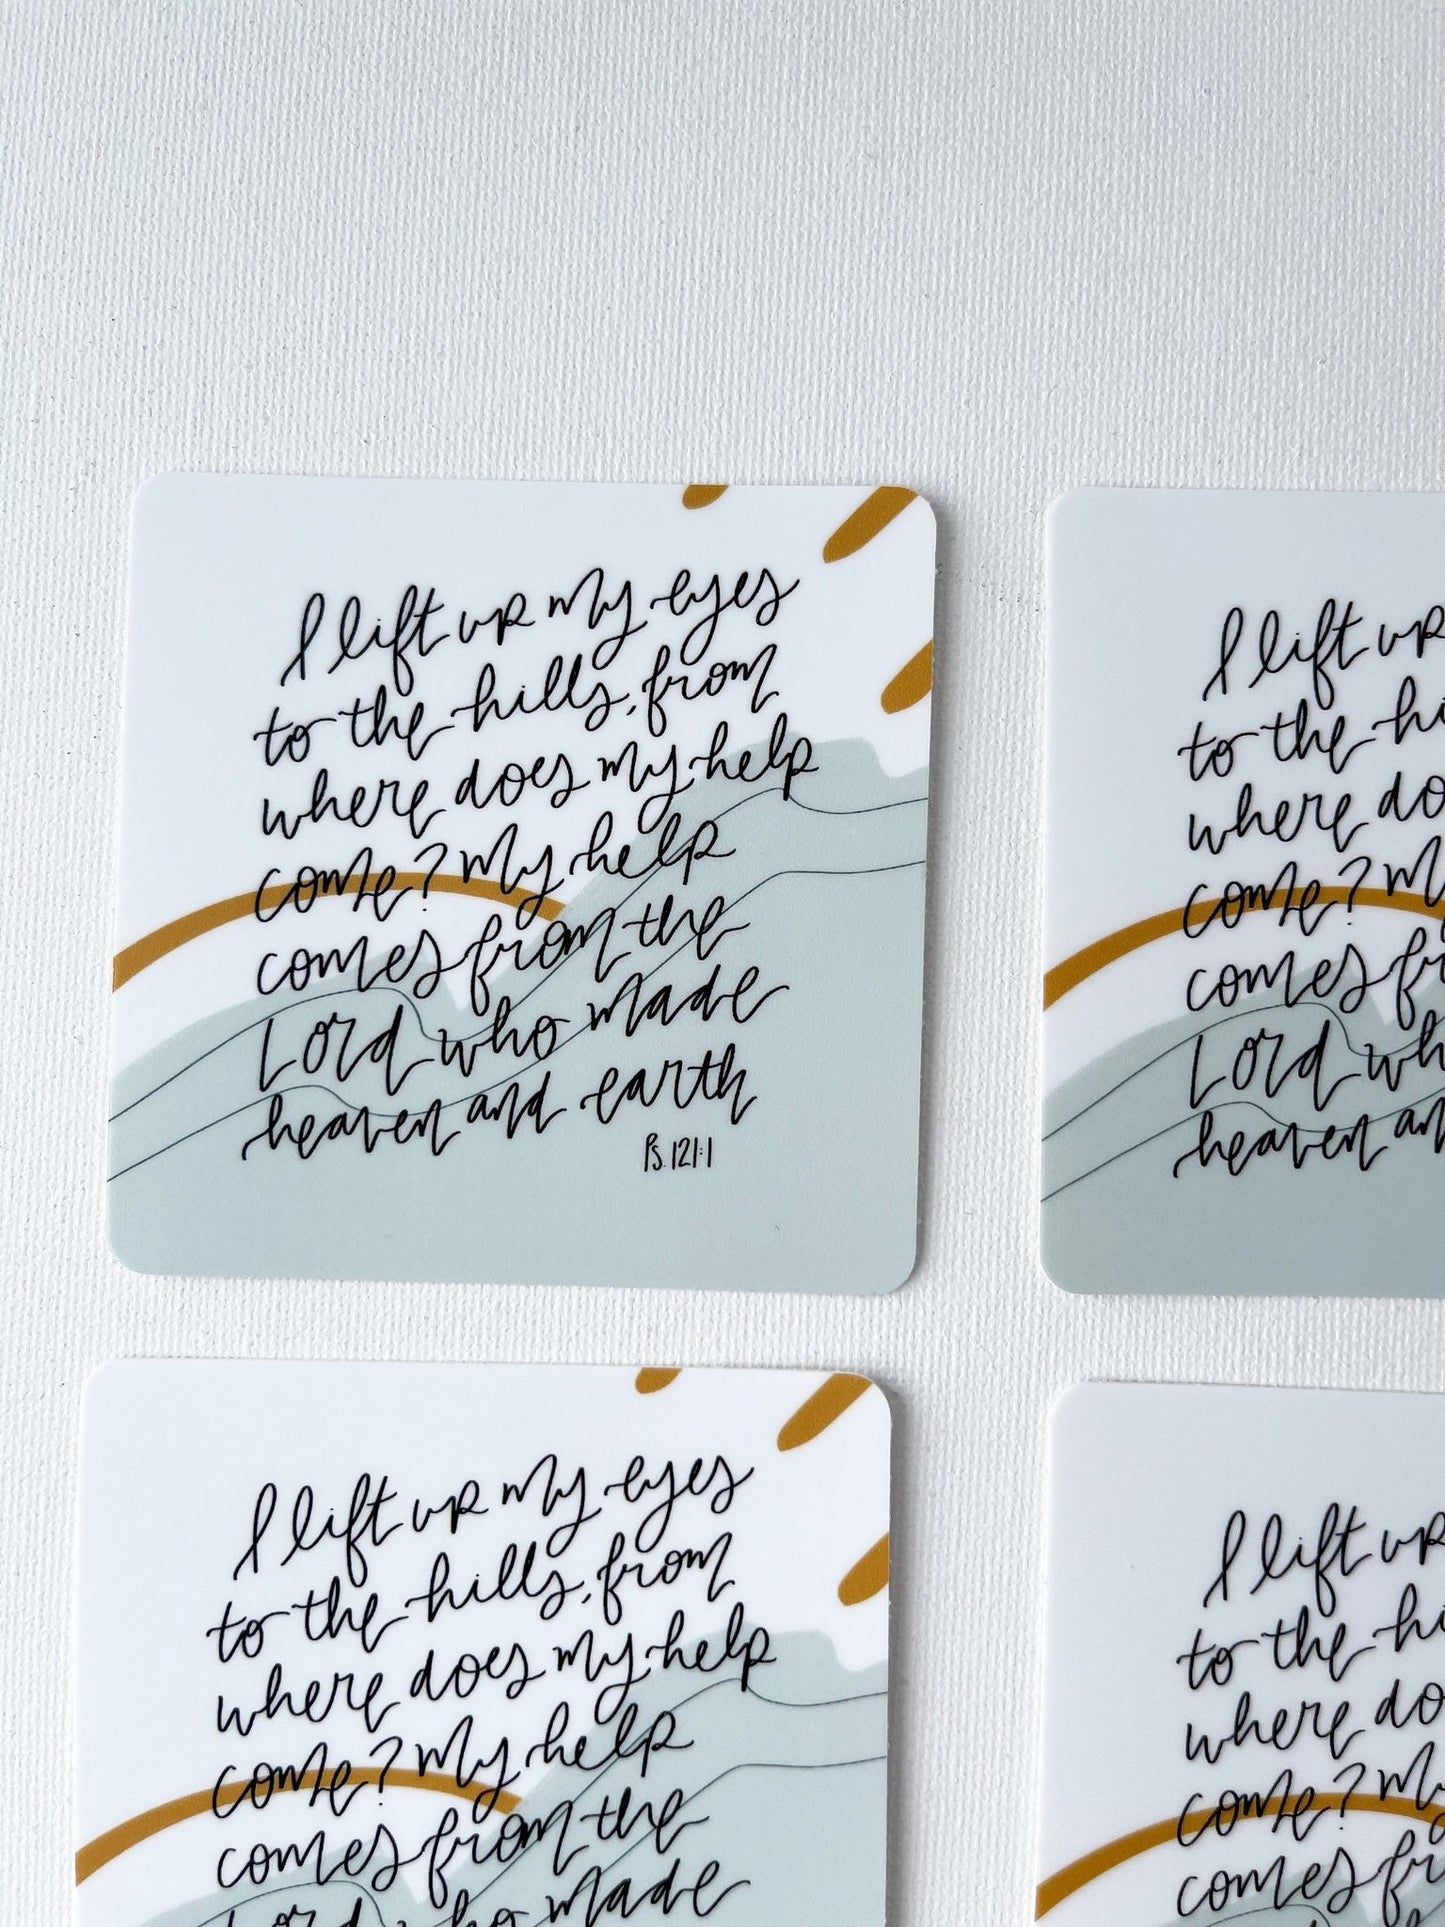 I lift up my eyes
to the hills, from
where does my help
come? My help
comes from the
Lord who made
heaven and earth
Ps. 121:1
I lift up
to the hi
where do
come? M
comes fr
Lord wh
heaven an
I lift up my eyes
to the hills, from
where does my help
come? My help
comes from the
Lord who made
I lift up
to the hi
where do
come? M
comes fr